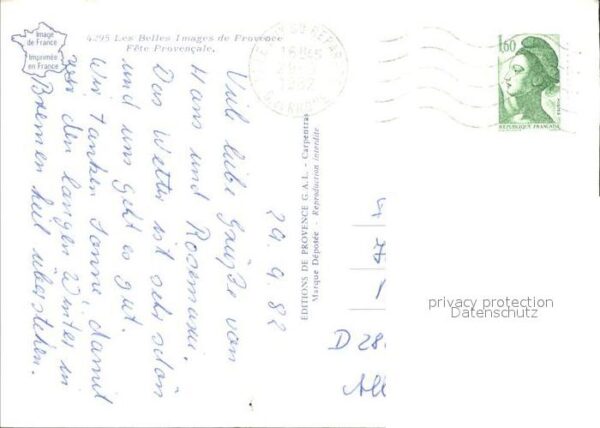 Image
de France
Imprimée
en France
4.295 Les Belles Images de Provence
Fête Provençale.
29.9.82
Viele liebe Grüße von
Hans und Rosemarie.
Das Wetter ist sehr schön
und uns geht es gut.
Wir tanken Sonne, damit
wir den langen Winter in
Bremen gut überstehen.
EDITIONS DE PROVENCE G.A.L. - Carpentras
Marque Déposée - Reproduction interdite
1,60
REPUBLIQUE FRANÇAISE
D 28
privacy protection
Datenschutz